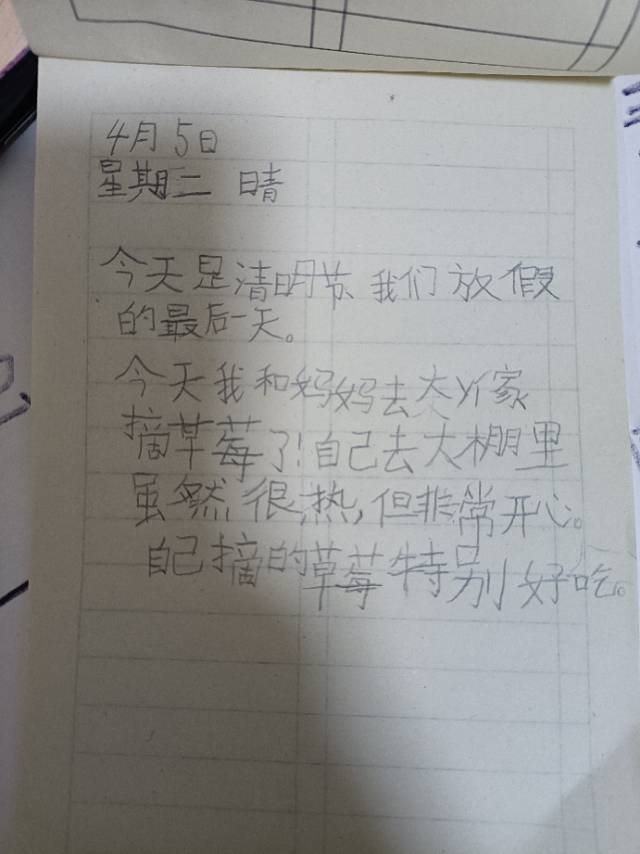 4月5日
星期二 晴
今天是清明节、我们放假
的最后一天。
今天我和妈妈去大丫家
摘草莓了!自己去大棚里
虽然很热,但非常开心。
自己摘的草莓特别好吃。